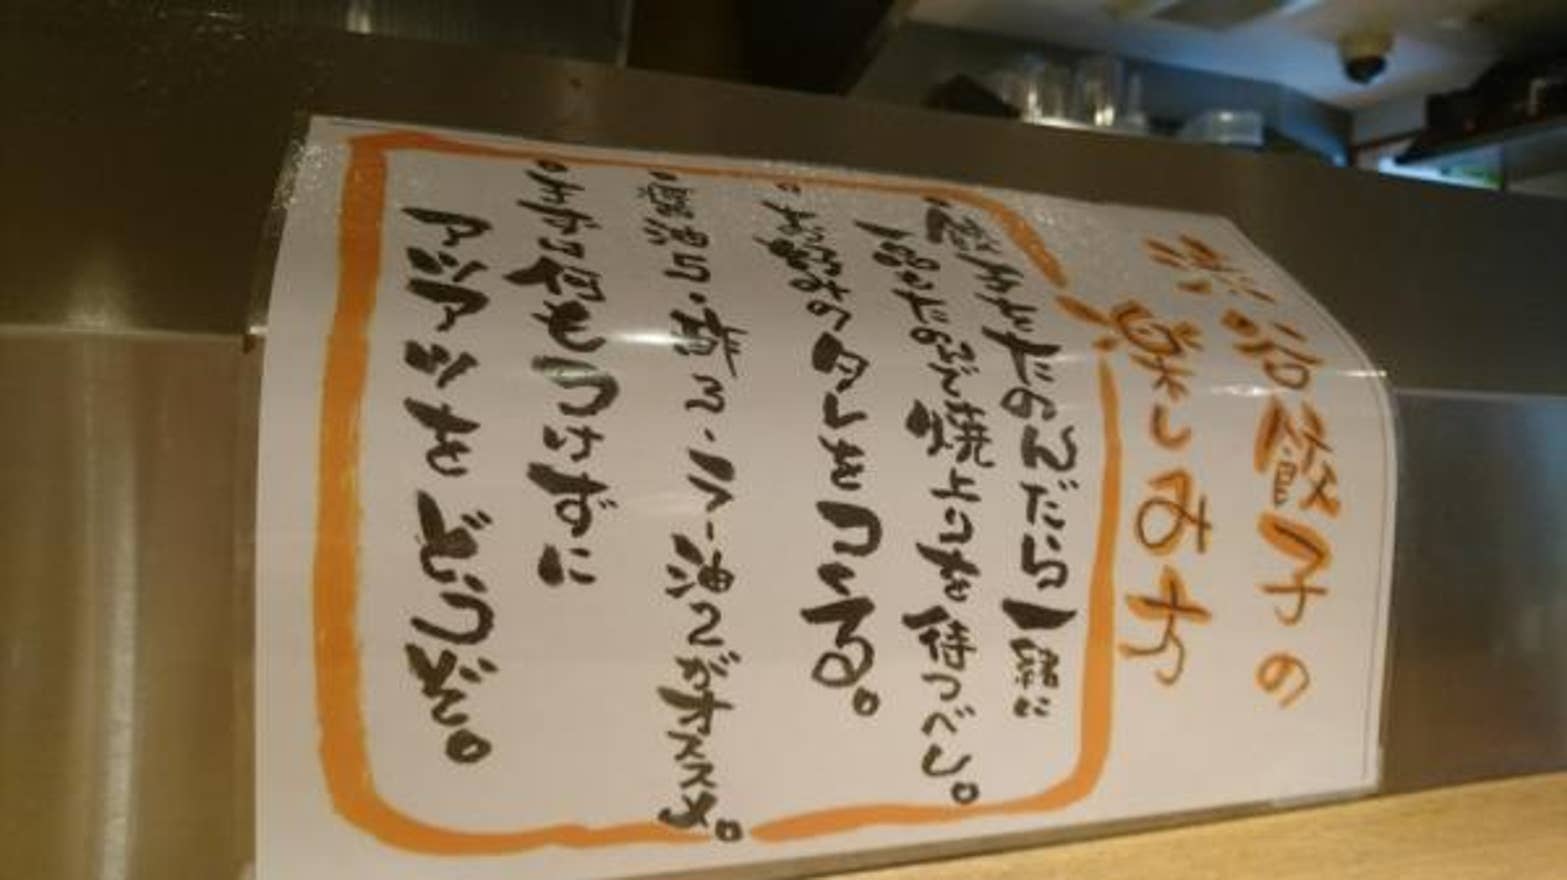 渋谷餃子の
楽しみ方
・餃子をたのんだら一緒に
一品をたのみ焼上りを待つべし。
・お好みのタレをつくる。
・醤油5・酢3・ラー油2がオススメ。
・まずは何もつけずに
アツアツをどうぞ。